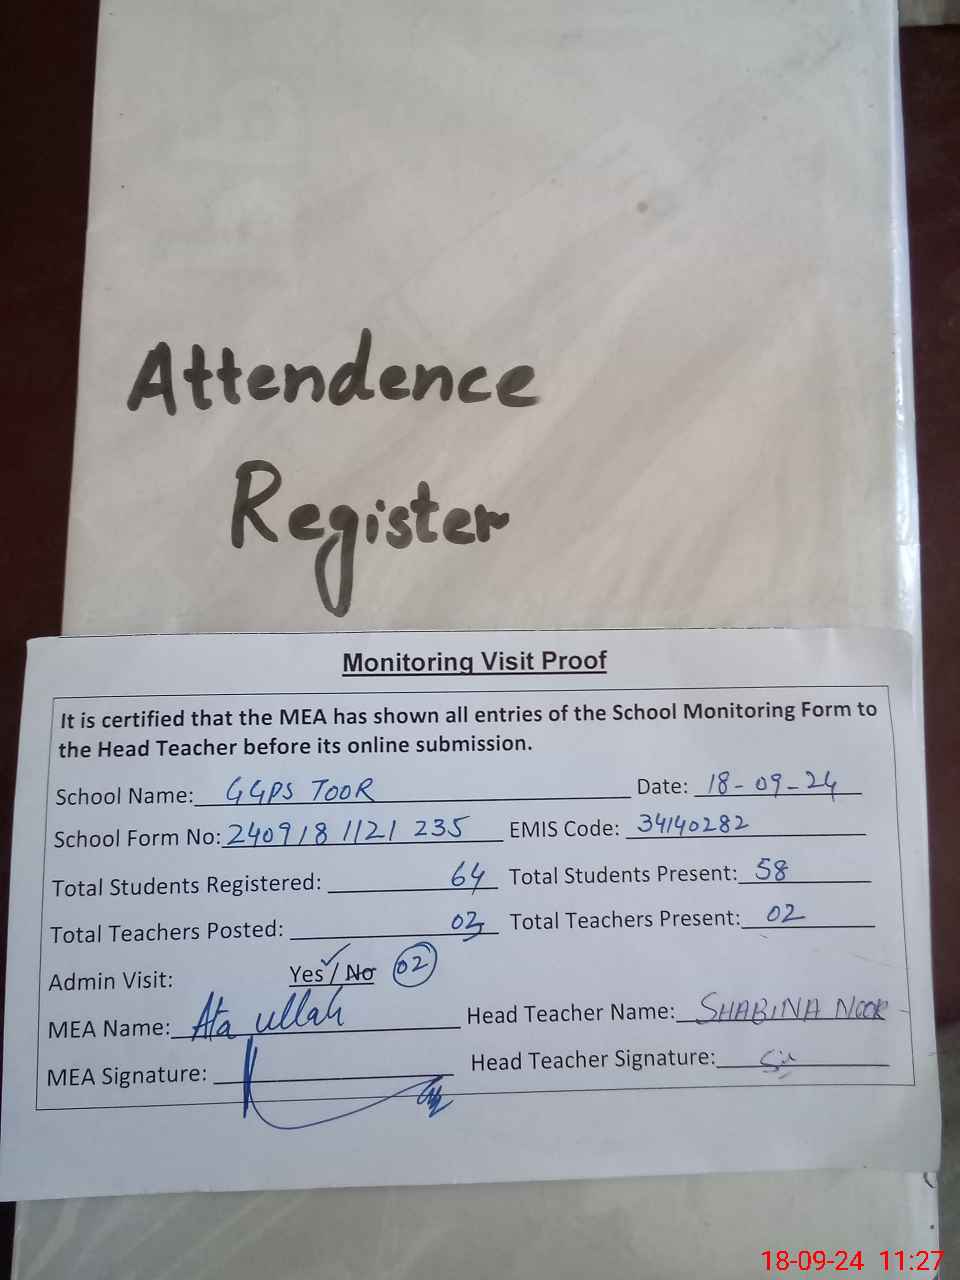 Attendence
Register
Monitoring Visit Proof
It is certified that the MEA has shown all entries of the School Monitoring Form to
the Head Teacher before its online submission.
School Name: GGPS TOOR Date: 18-09-24
School Form No: 240918 1121 235 EMIS Code: 34140282
Total Students Registered: 64 Total Students Present: 58
Total Teachers Posted: 03 Total Teachers Present: 02
Admin Visit: Yes / No 02
MEA Name: Ata ullah Head Teacher Name: SHABINA NOOR
MEA Signature: Head Teacher Signature:
18-09-24 11:27